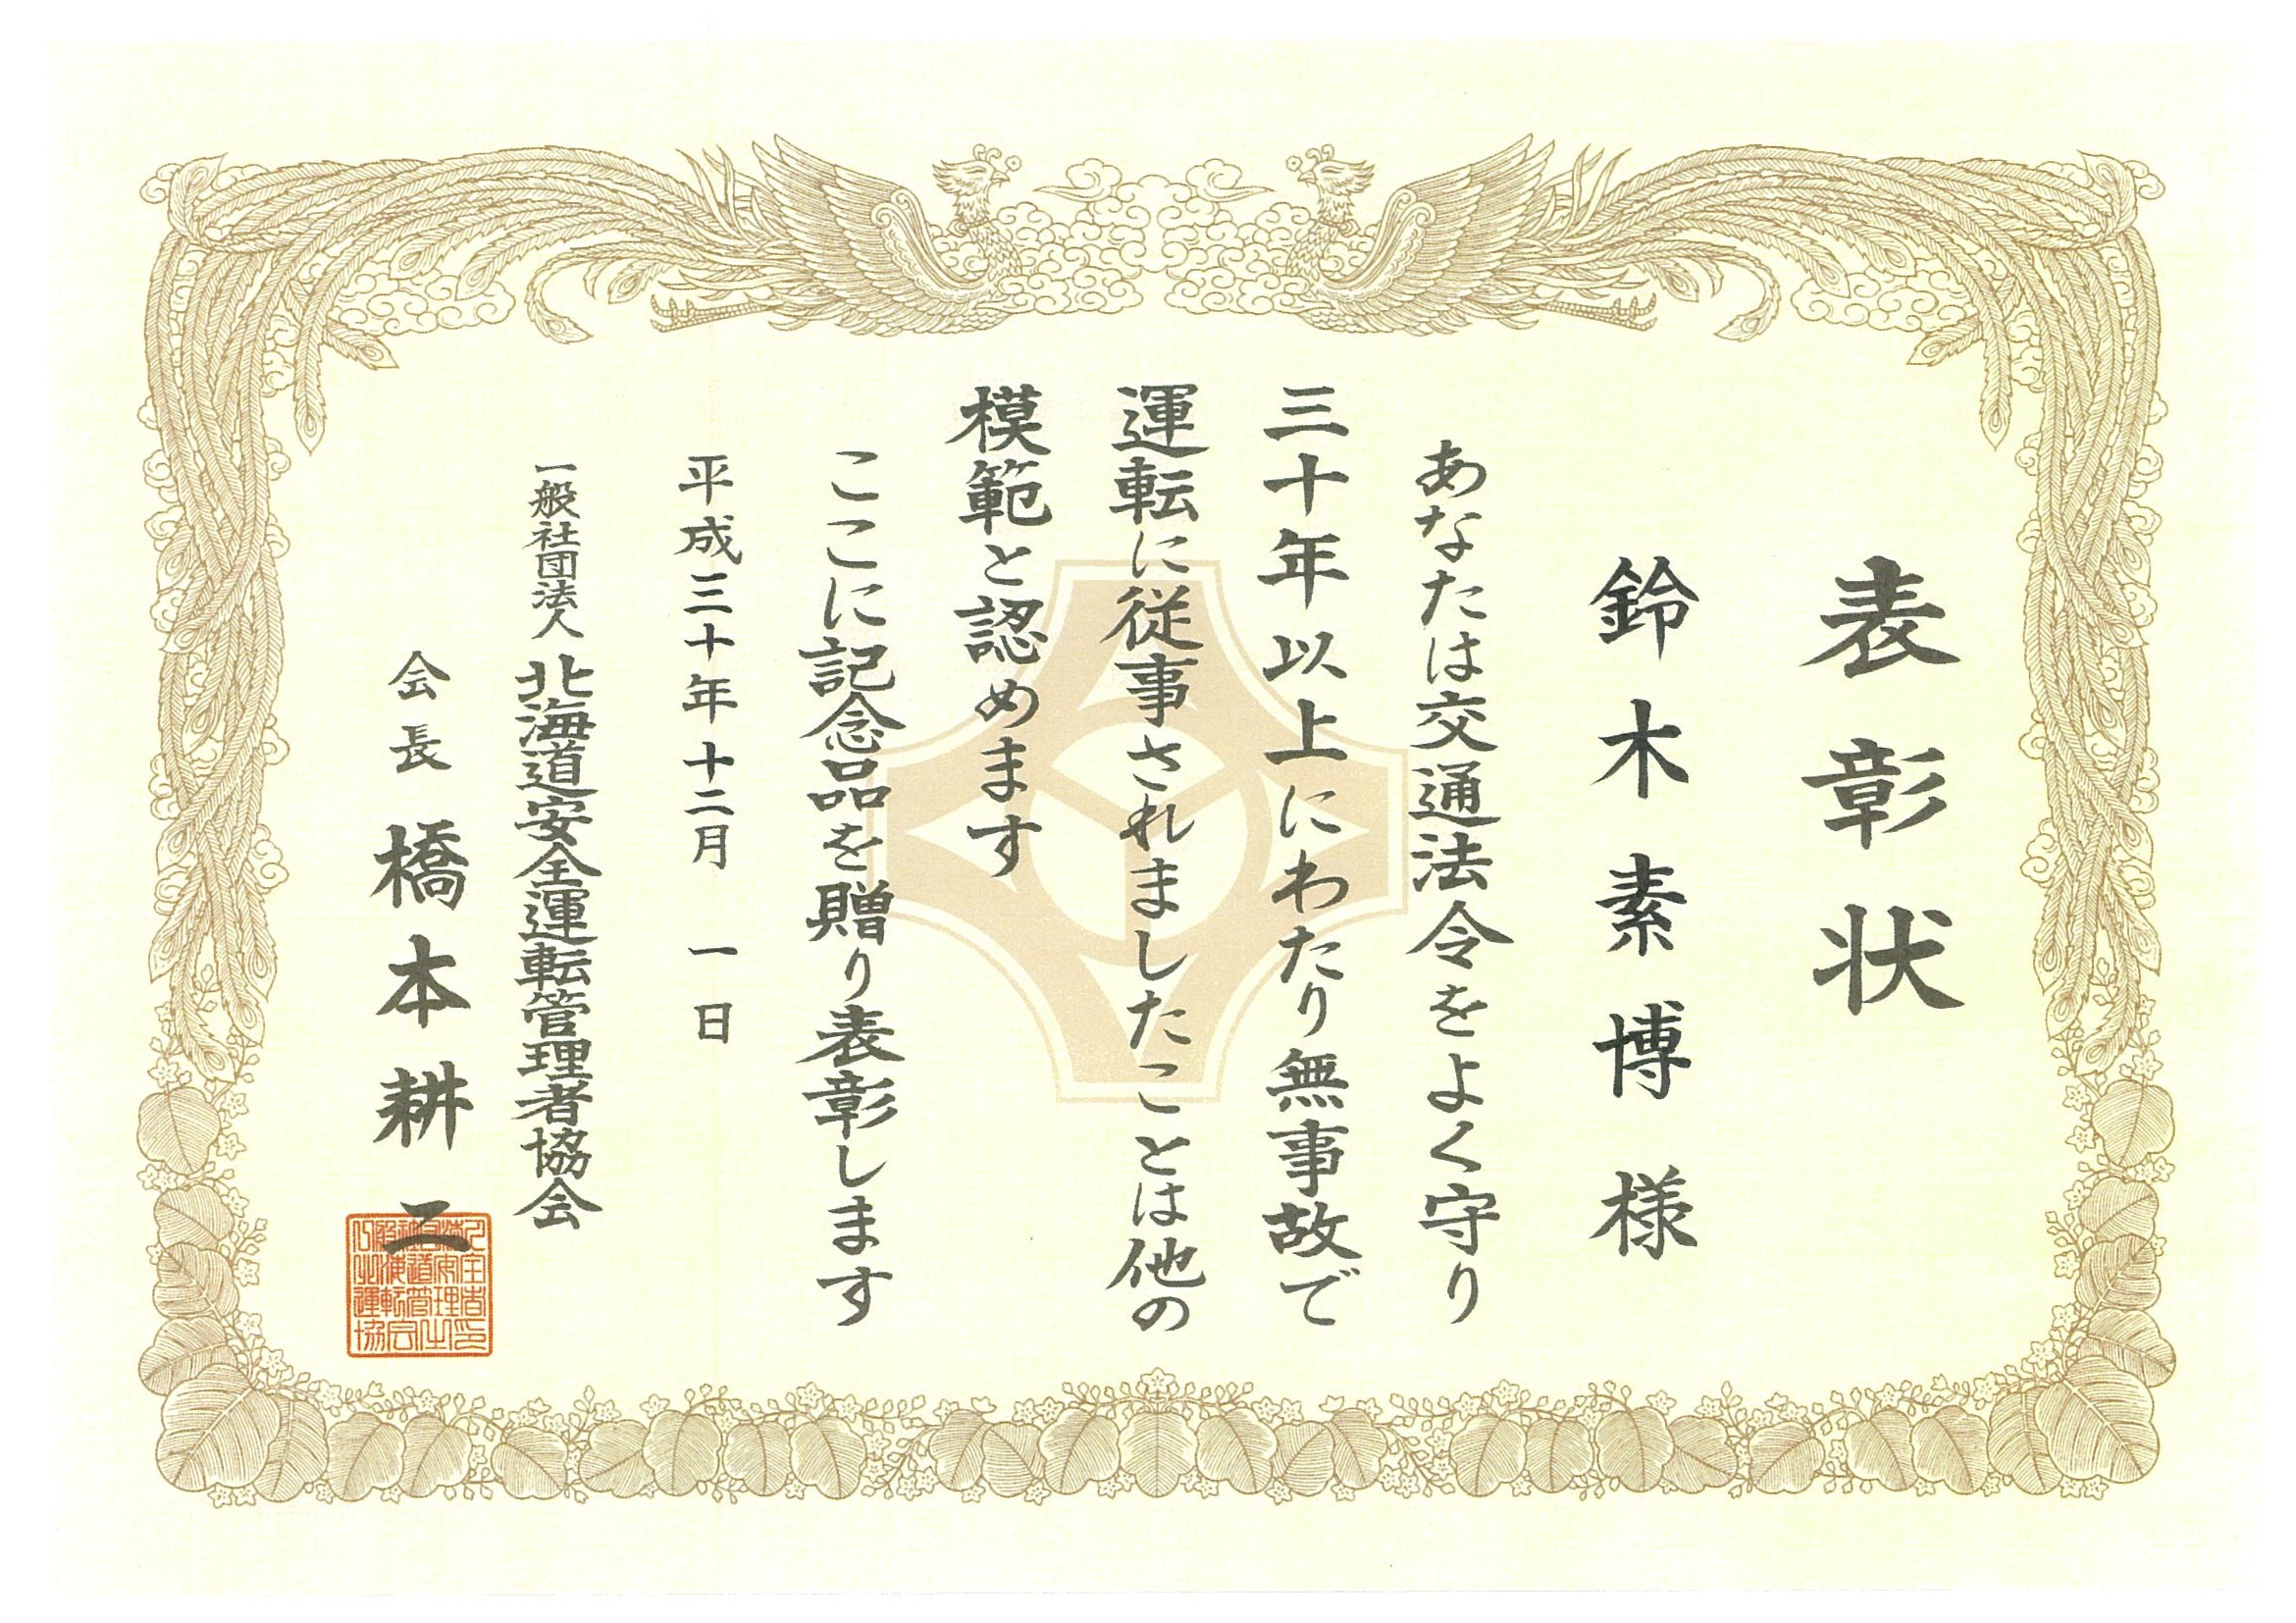 表彰状
鈴木素博様
あなたは交通法令をよく守り
三十年以上にわたり無事故で
運転に従事されましたことは他の
模範と認めます
ここに記念品を贈り表彰します
平成三十年十二月一日
一般社団法人北海道安全運転管理者協会
会長橋本耕二